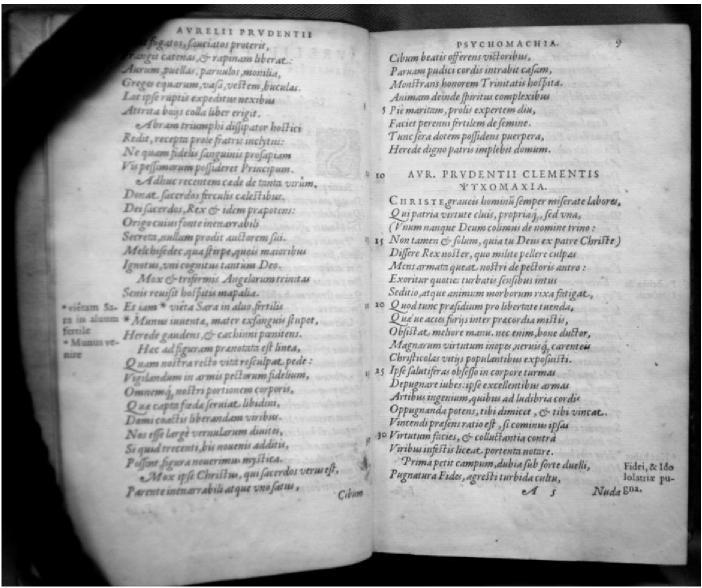 AVRELII PRVDENTII
fugatos, sauciatos proterit,
catenas, & rapinam liberat:
Aurum, puellas, paruulos, monilia,
Greges equarum, vasa, vestem, buculas.
Lot ipse ruptis expeditus nexibus
Attrita baijs colla liber erigit.
Abram triumphi dissipator hostici
Redit, recepta prole fratris inclytus:
Ne quam fidelis sanguinis prosapiam
Vis pessimorum possideret Principum.
Adhuc recentem cæde de tanta virum,
Donat sacerdos ferculis cælestibus.
Dei sacerdos, Rex & idem præpotens:
Origo cuius fonte inenarrabili
Secreta, nullum prodit auctorem sui.
Melchisedec, qua stirpe, queis maioribus
Ignotus, vni cognitus tantum Deo.
Mox & triformis Angelorum trinitas
Senis reuisit hospitis mapalia.
* vietam Sara in aluum fertile
Et iam * vieta Sara in aluo fertilis
* Munus iuuentæ, mater exsanguis stupet,
* Munus venire
Herede gaudens, & cachinni pænitens.
Hæc ad figuram prænotata est linea,
Quam nostra recto vita resculpat pede:
Vigilandum in armis pectorum fidelium,
Omnemq́; nostri portionem corporis,
Quæ capta fœdæ seruiat libidini,
Domi coactis liberandam viribus.
Nos esse largè vernularum diuites,
Si quid trecenti, bis nouenis additis,
Possint figura nouerimus mystica.
Mox ipse Christus, qui sacerdos verus est,
Parente inenarrabili atque vno satus,
Cibum
PSYCHOMACHIA. 9
Cibum beatis offerens victoribus,
Paruam pudici cordis intrabit casam,
Monstrans honorem Trinitatis hospita.
Animam deinde spiritus complexibus
5 Pie maritam, prolis expertem diu,
Faciet perenni fertilem de semine.
Tunc sera dotem possidens puerpera,
Herede digno patris implebit domum.
10 AVR. PRVDENTII CLEMENTIS
ΨΥΧΟΜΑΧΙΑ.
CHRISTE graueis hominū semper miserate labores,
Qui patria virtute cluis, propriaq́;, sed vna,
(Vnum nanque Deum colimus de nomine trino:
15 Non tamen & solum, quia tu Deus ex patre Christe)
Dissere Rex noster, quo milite pellere culpas
Mens armata queat nostri de pectoris antro:
Exoritur quoties turbatis sensibus intus
Seditio, atque animum morborum rixa fatigat,
20 Quod tunc præsidium pro libertate tuenda,
Quæ ue acies furijs inter præcordia mistis,
Obsistat meliore manu. nec enim, bone ductor,
Magnarum virtutum inopes, neruisq́; carenteis
Christicolas vitijs populantibus exposuisti.
25 Ipse salutiferas obsesso in corpore turmas
Depugnare iubes: ipse excellentibus armas
Artibus ingenium, quibus ad ludibria cordis
Oppugnanda potens, tibi dimicet, & tibi vincat.
Vincendi præsens ratio est, si cominus ipsas
30 Virtutum facies, & colluctantia contrà
Viribus infestis liceat portenta notare.
Prima petit campum, dubia sub sorte duelli,
Pugnatura Fides, agresti turbida cultu,
Fidei, & Idololatriæ pugna.
A 5 Nuda